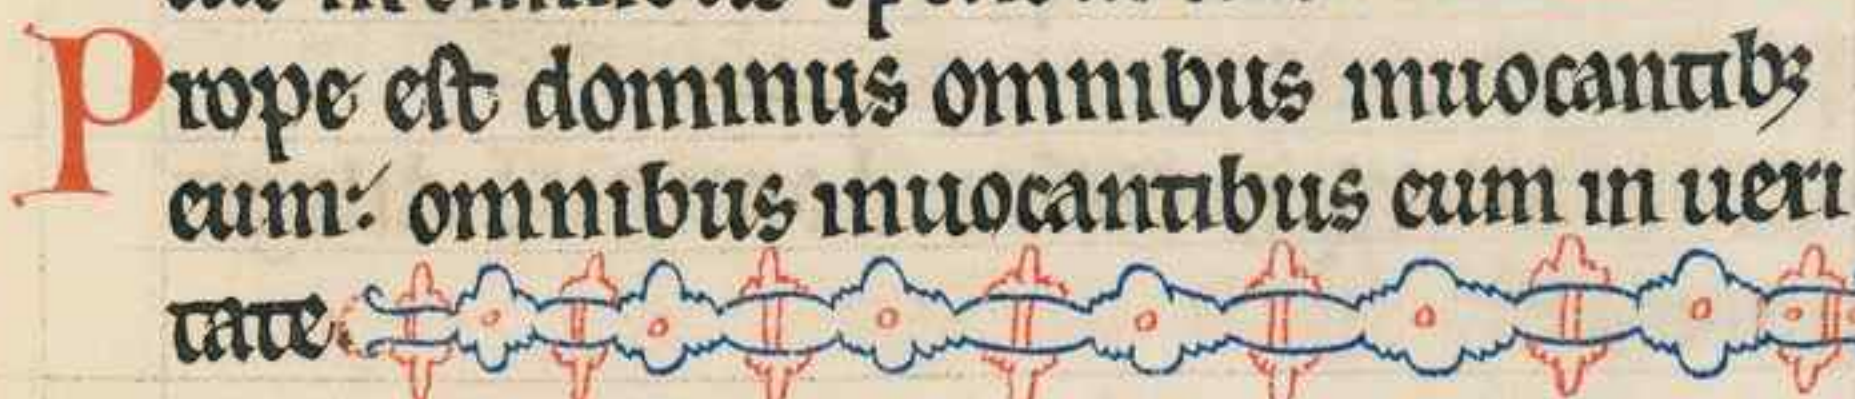 Prope est dominus omnibus inuocantibꝫ
eum: omnibus inuocantibus eum in ueri
tate